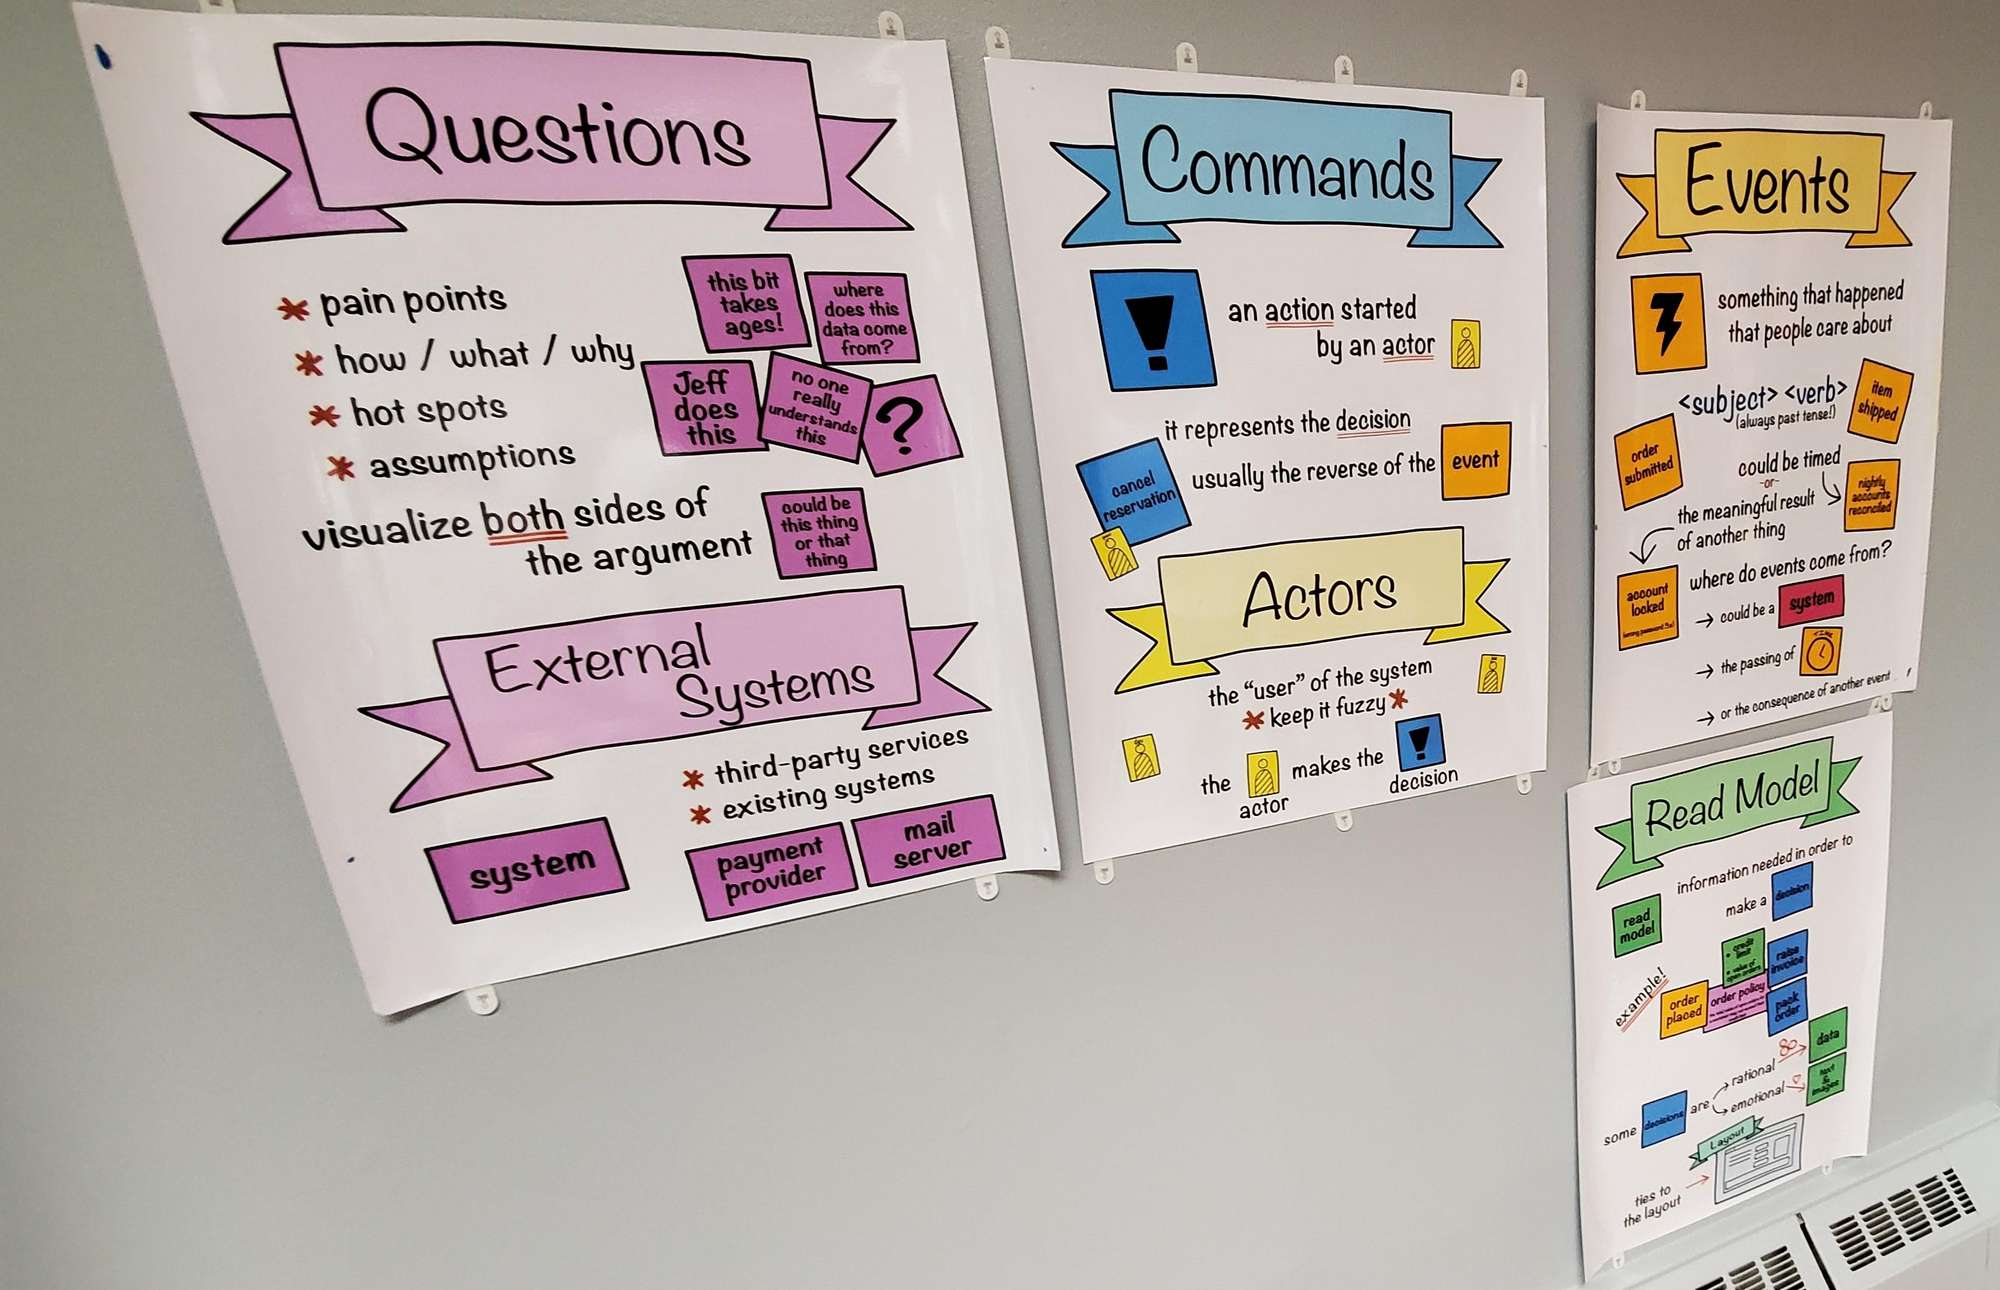 Questions
* pain points
* how / what / why
* hot spots
* assumptions
this bit
takes
ages!
where
does this
data come
from?
Jeff
does
this
no one
really
understands
this
?
visualize both sides of
the argument
could be
this thing
or that
thing
External
Systems
* third-party services
* existing systems
system
payment
provider
mail
server
Commands
!
an action started
by an actor
it represents the decision
usually the reverse of the event
cancel
reservation
Actors
the "user" of the system
* keep it fuzzy *
the makes the !
actor
decision
Events
something that happened
that people care about
<subject> <verb>
(always past tense!)
item
shipped
order
submitted
could be timed
-or-
nightly
accounts
reconciled
the meaningful result
of another thing
account
locked
where do events come from?
→ could be a system
→ the passing of TIME
→ or the consequence of another event
Read Model
information needed in order to
make a decision
read
model
example!
credit
limit
value of
open orders
raise
invoice
order
placed
order policy
pack
order
some decisions are
→ rational
→ emotional
data
text
&
images
Layout
ties to
the layout